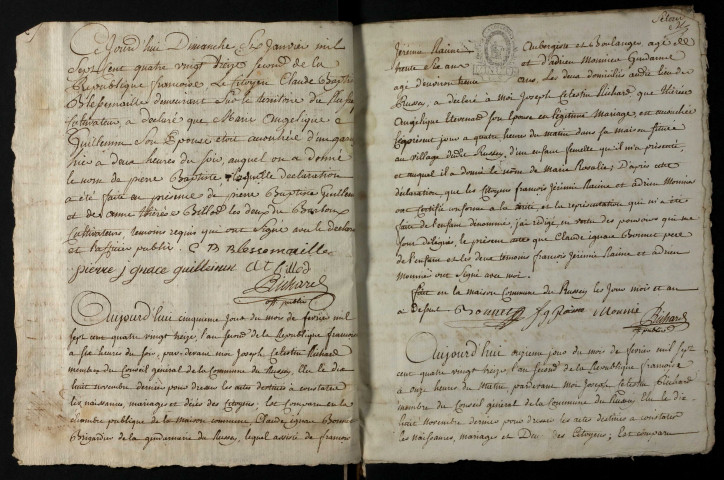 Ce Jourd'hui Dimanche Six Janvier mil
Sept Cent quatre vingt treize second de la
Republique francoise, Le Citoyen Claude Baptiste
Blessemaille demeurant sur le territoire du Russey
Cultivateur, a déclaré que Marie Angelique
Guillemin Son Epouse etoit accouchée d'un garçon
hier a deux heures du soir, auquel on a donné
le nom de pierre Baptiste laquelle declaration
a été faite en presence de pierre Baptiste Guillemin
et de anne therese Billod les deux du
Cultivateurs temoins requis qui ont Signé avec le declarant
et l'officier public C B Blessemaille
pierre ignace guillemin At billod
Richard
off public
Aujourd'hui cinquieme Jour du mois de fevrier mil
sept cent quatre vingt treize, l'an second de la Republique francoise
a six heures du soir, par devant moi Joseph Celestin Richard
membre du Conseil general de la Commune du Russey, Elu le dix
huit novembre dernier pour dresser les actes destinés a constater
les naissances, mariages et décès des Citoyens; Est Comparu en la
chambre publique de la maison commune, Claude ignace Bouvet
Brigadier de la gendarmerie du Russey, lequel assisté de francois
Jérémie Raine Aubergiste et Boulanger agé de
trente Six ans et d'adrien Monnier Gendarme
agé d'environ trente ans, Les deux domiciliés audit lieu du
Russey, a déclaré à Moi Joseph Celestin Richard que thérèse
Angélique Son Epouse en légitime Mariage, est accouchée
jour a quatre heures du matin dans sa maison située
au village dudit Russey, d'un enfant femelle qu'il m'a presenté,
et auquel il a donné le nom de Marie Rosalie; D'après cette
déclaration que les Citoyens francois Jérémie Raine et adrien Monnier
ont Certifié conforme a la vérité et la représentation qui m'a été
faite de l'enfant dénommé, j'ai rédigé, en vertu des pouvoirs qui me
sont délégués, le présent acte que Claude ignace Bouvet pere
de l'enfant et les deux temoins francois Jérémie Raine et adrien
Monnier ont Signé avec moi.
fait en la maison Commune du Russey les Jour mois et an
Bouvet Monnier
Richard
off public
Aujourd'hui onzieme jour du mois de fevrier mil sept
cent quatre vingt treize, l'an second de la Republique francoise
a onze heures du Matin, par devant moi Joseph Celestin Richard
membre du Conseil général de la Commune du Russey Elu le dix
huit Novembre dernier pour dresser les actes destinés a constater
les naissances, mariages et des Citoyens; Est comparu